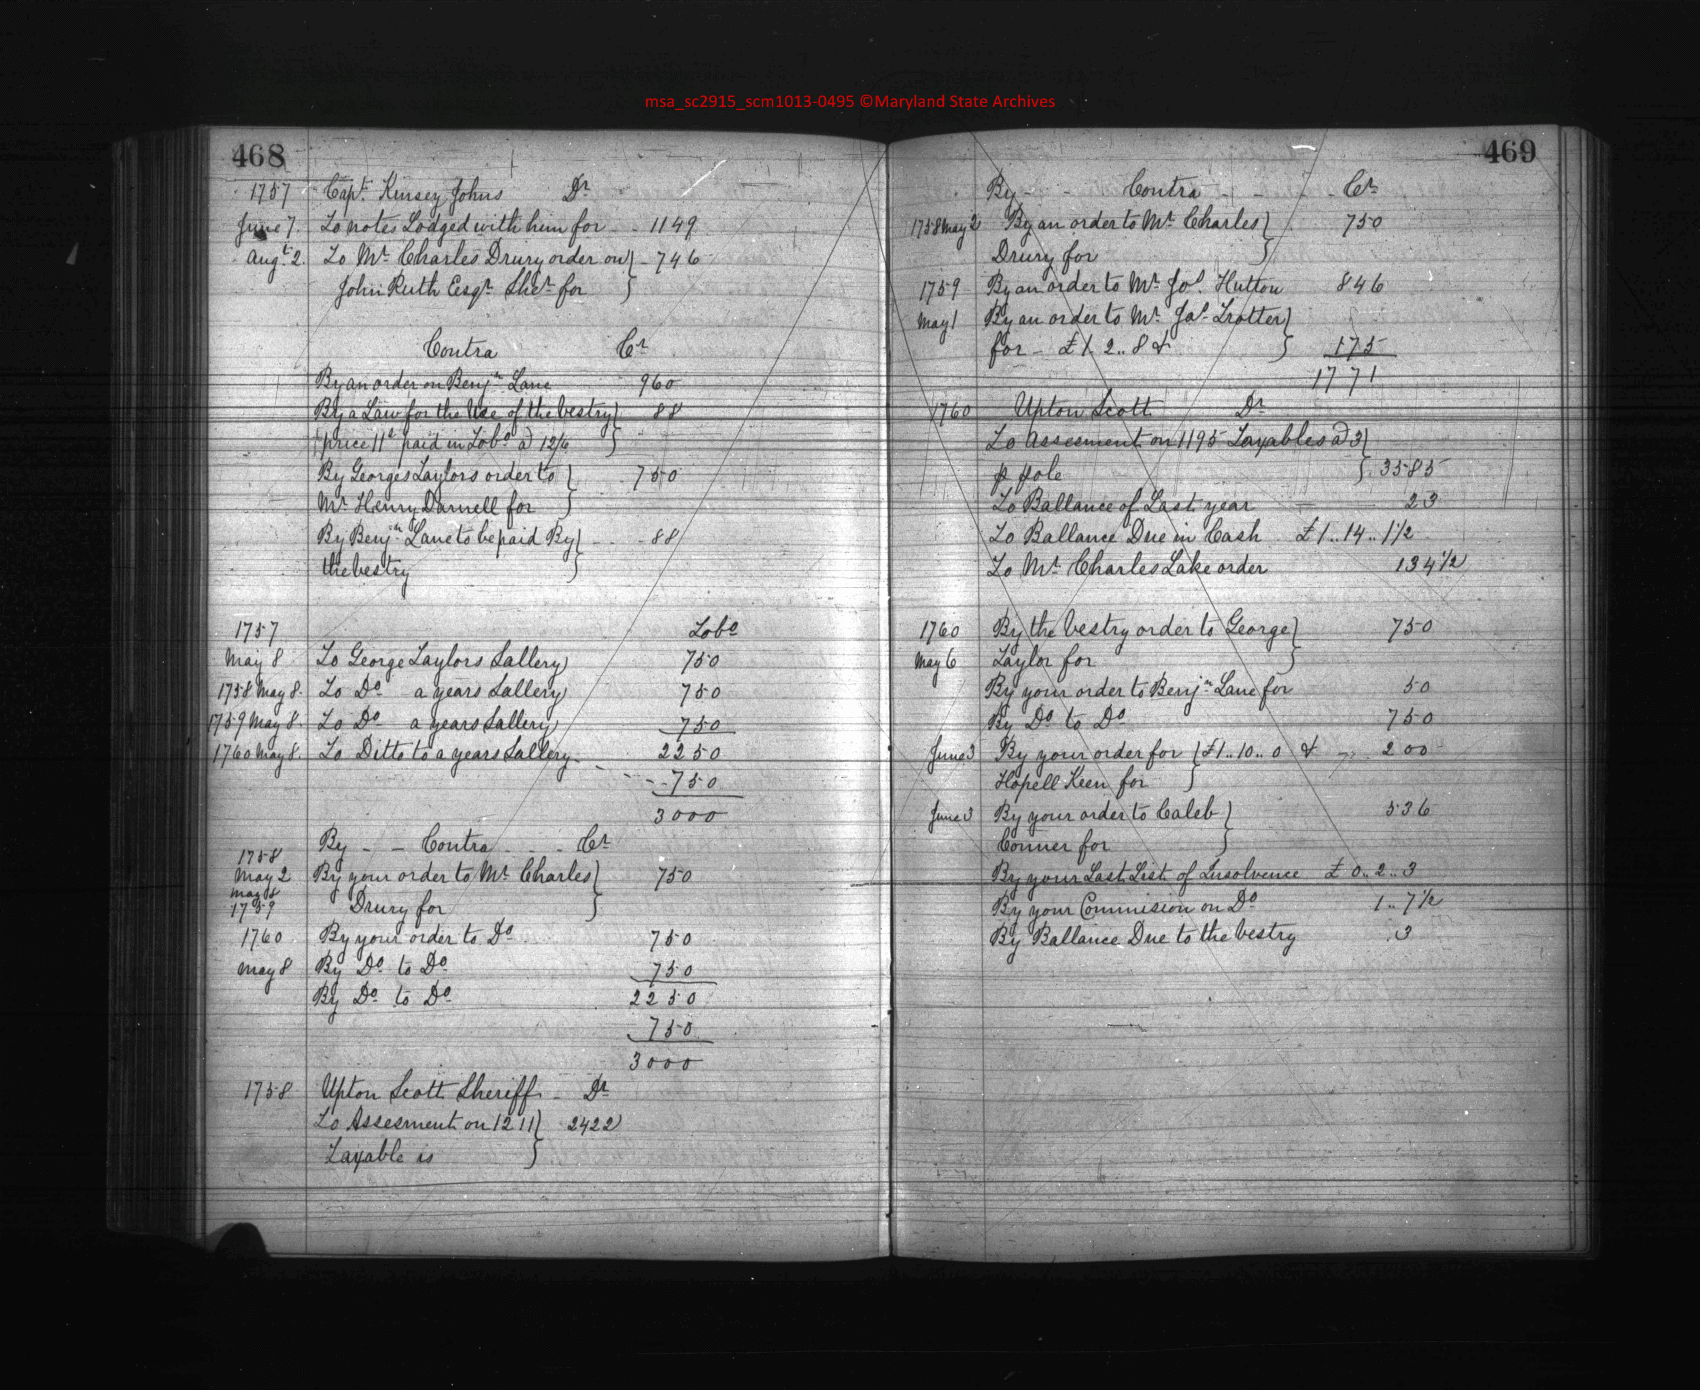 msa_sc2915_scm1013-0495 ©Maryland State Archives
468
1757 Capt. Kinsey Johns Dr
June 7. To notes Lodged with him for - - 1149
Augt. 2. To Mr. Charles Drury order on } - 746
John Ruth Esqr. Sher. for }
Contra Cr
By an order on Benjn. Lane 960
By a Law for the Use of the vestry } 88
price 11d paid in Tobo. @ 12/6 }
By Georges Taylors order to } - - 750
Mr. Henry Darnell for }
By Benjn. Lane to be paid By } - - 88
the vestry }
1757 Tobo
May 8 To George Taylors Sallery 750
1758 May 8. To Do. a years Sallery 750
1759 May 8. To Do. a years Sallery 750
1760 May 8. To Ditto to a years Sallery - 2250
- - - 750
3000
By - - Contra - - - Cr
1758
May 2 By your order to Mr. Charles } 750
May 8
1759 Drury for }
1760 By your order to Do. 750
May 8 By Do. to Do. 750
By Do. to Do. 2250
750
3000
1758 Upton Scott Sheriff - Dr
To Assesment on 1211 } 2422
Taxable is }
469
By - - Contra - - Cr
1758 May 2 By an order to Mr. Charles } 750
Drury for }
1759 By an order to Mr. Jos. Hutton 846
May 1 By an order to Mr. Jas. Trotter }
for - £1. 2.. 8 & } 175
1771
1760 Upton Scott Dr
To Assesment on 1195 Taxables @ 3 }
p pole } 3585
To Ballance of Last year 23
To Ballance Due in Cash £1.. 14.. 1½
To Mr. Charles Lake order 134½
1760 By the vestry order to George } 750
May 6 Taylor for }
By your order to Benjn. Lane for 50
By Do. to Do. 750
June 3 By your order for { £1.. 10.. 0 & - 200
Hopell Keen for }
June 3 By your order to Caleb } 536
Conner for }
By your Last List of Insolvence £ 0.. 2.. 3
By your Commision on Do. 1.. 7½
By Ballance Due to the vestry 3